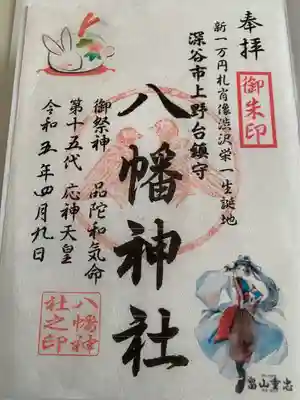 奉拝
御朱印
新一万円札肖像渋沢栄一生誕地
深谷市上野台鎮守
八幡神社
御祭神 品陀和気命
第十五代 応神天皇
令和五年四月九日
八幡神
社之印
畠山重忠